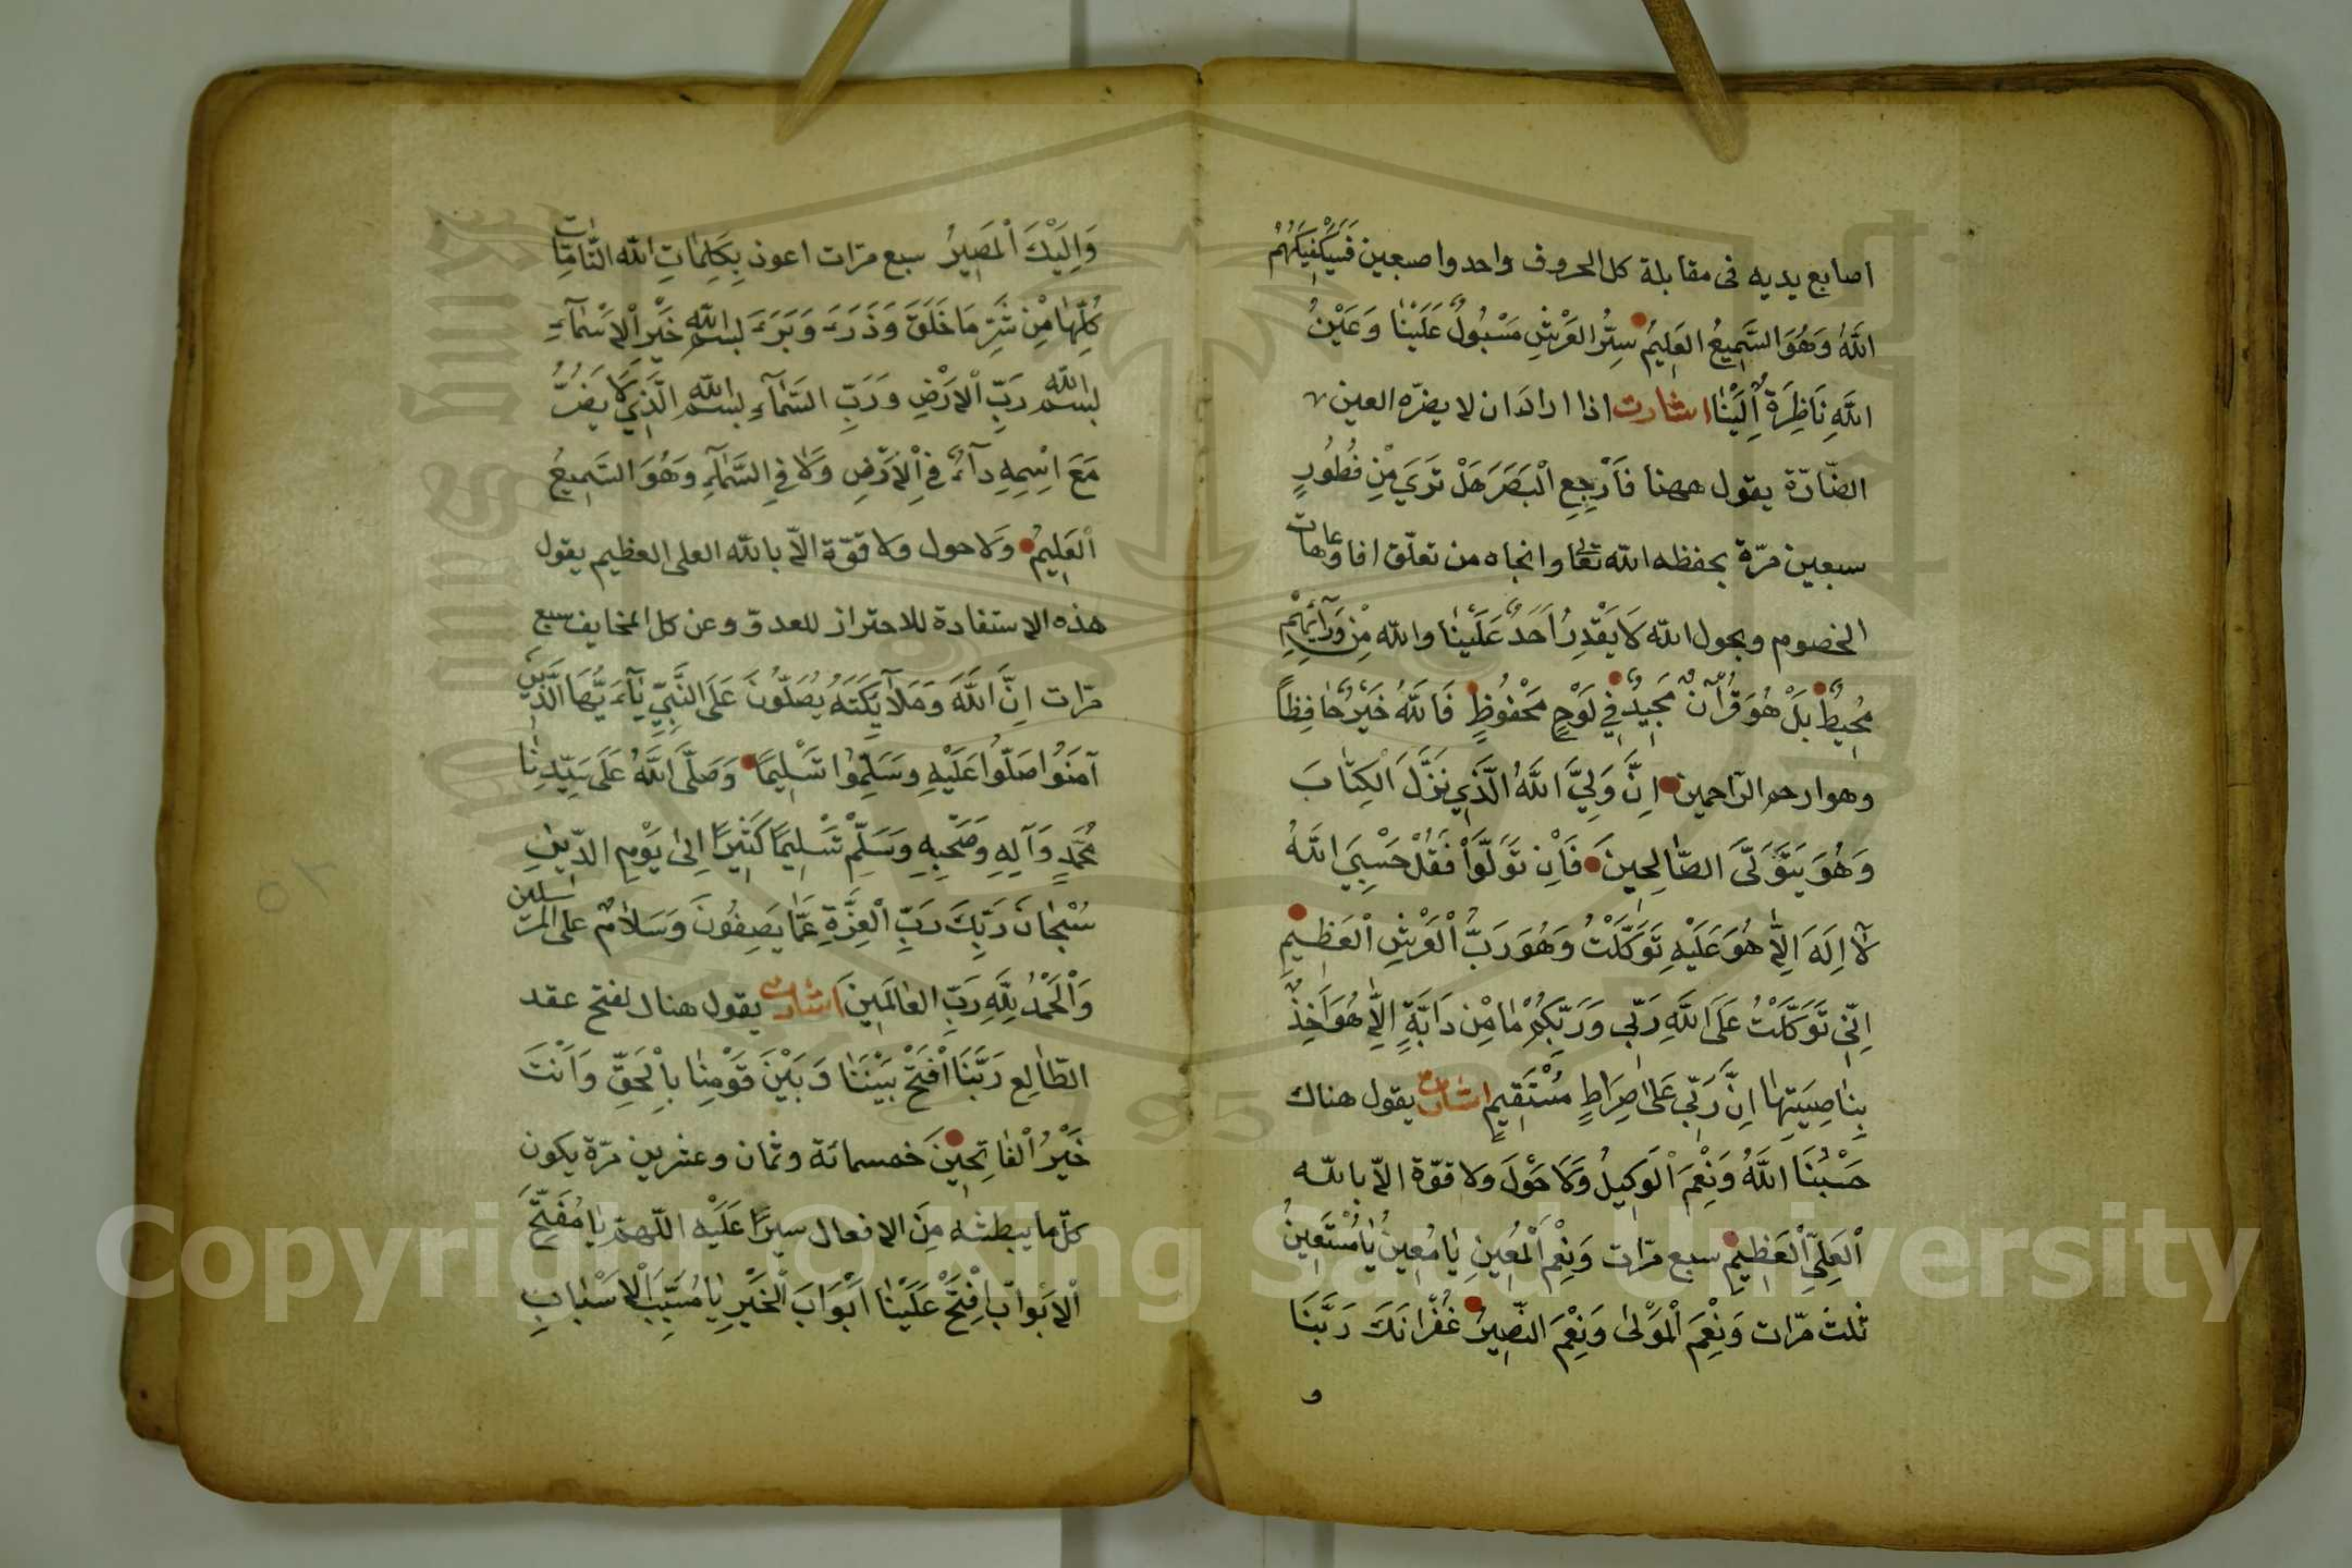 اصابع يديه فى مقابلة كل الحروف واحد واصبعين فَسَيَكْفِيكَهُمُ
اللَّهُ وَهُوَ السَّمِيعُ العَلِيمُ سِتْرُ العَرْشِ مَسْبُولٌ عَلَيْنَا وَعَيْنُ
اللَّهِ نَاظِرَةٌ اِلَيْنَا اشارت اذا ارادَ ان لا يضرّه العين
الضّارّة يقول ههنا فَارْجِعِ الْبَصَرَ هَلْ تَرَى مِنْ فُطُورٍ
سبعين مرّة يحفظه الله تعالى وانجاه من تعلّق افا وعاهات
الخصوم وبحول الله لَا يَقْدِرُ اَحَدٌ عَلَيْنَا والله مِنْ وَرَآئِهِمْ
مُحِيطٌ بَلْ هُوَ قُرْاٰنٌ مَجِيدٌ فِي لَوْحٍ مَحْفُوظٍ فَاللَّهُ خَيْرٌ حَافِظًا
وهو ارحم الرّاحمين اِنَّ وَلِيَّ اللَّهُ الَّذِي نَزَّلَ الْكِتَابَ
وَهُوَ يَتَوَلَّى الصَّالِحِينَ فَاِنْ تَوَلَّوْا فَقُلْ حَسْبِيَ اللَّهُ
لَآ اِلَهَ اِلَّا هُوَ عَلَيْهِ تَوَكَّلْتُ وَهُوَ رَبُّ الْعَرْشِ الْعَظِيمِ
اِنِّي تَوَكَّلْتُ عَلَى اللَّهِ رَبِّي وَرَبِّكُمْ مَا مِنْ دَابَّةٍ اِلَّا هُوَ اٰخِذٌ
بِنَاصِيَتِهَا اِنَّ رَبِّي عَلَى صِرَاطٍ مُسْتَقِيمٍ اشارت يقول هناك
حَسْبُنَا اللَّهُ وَنِعْمَ الْوَكِيلُ وَلَا حَوْلَ ولا قوّة الاّ بالله
الْعَلِيِّ الْعَظِيمِ سبع مرّات وَنِعْمَ الْمُعِينِ يَا مُعِينُ يَا مُسْتَعِينُ
ثلث مرّات وَنِعْمَ الْمَوْلَى وَنِعْمَ النَّصِيرُ غُفْرَانَكَ رَبَّنَا
و
وَاِلَيْكَ الْمَصِيرُ سبع مرّات اعوذ بِكَلِمَاتِ الله التَّامَّاتِ
كُلِّهَا مِنْ شَرِّ مَا خَلَقَ وَذَرَءَ وَبَرَءَ بسم الله خَيْرِ الْاَسْمَآءِ
بسم الله رَبِّ الْاَرْضِ وَرَبِّ السَّمَآءِ بسم الله الَّذِي لَا يَضُرُّ
مَعَ اسْمِهِ دآءٌ فِي الْاَرْضِ وَلَا فِي السَّمَآءِ وَهُوَ السَّمِيعُ
الْعَلِيمُ وَلَا حول ولا قوّة الاّ بالله العلى العظيم يقول
هذه الاستفادة للاحتراز للعدوّ وعن كل المخايف سبع
مرّات اِنَّ اللَّهَ وَمَلآئِكَتَهُ يُصَلُّونَ عَلَى النَّبِيِّ يَآءَيُّهَا الَّذِينَ
آمَنُوا صَلُّوا عَلَيْهِ وَسَلِّمُوا تَسْلِيمًا وَصَلَّى اللَّهُ عَلَى سَيِّدِنَا
مُحَمَّدٍ وَآلِهِ وَصَحْبِهِ وَسَلِّمْ تَسْلِيمًا كَثِيرًا اِلَى يَوْمِ الدِّينِ
سُبْحَانَ رَبِّكَ رَبِّ الْعِزَّةِ عَمَّا يَصِفُونَ وَسَلَامٌ على المرسلين
وَالْحَمْدُ لِلَّهِ رَبِّ العَالَمِينَ اشارت يقول هنا لفتح عقد
الطَّالِعِ رَبَّنَا افْتَحْ بَيْنَنَا وَبَيْنَ قَوْمِنَا بِالْحَقِّ وَاَنْتَ
خَيْرُ الْفَاتِحِينَ خمسمائة وثمان وعشرين مرّة يكون
كلّ ما يبطشه مِنَ الافعال سيرًا عَلَيْه اللّهمّ يَا مُفَتِّحَ
الْاَبْوَابِ افْتَحْ عَلَيْنَا اَبْوَابَ الْخَيْرِ يَا مُسَبِّبَ الْاَسْبَابِ
Copyright © King Saud University
1957